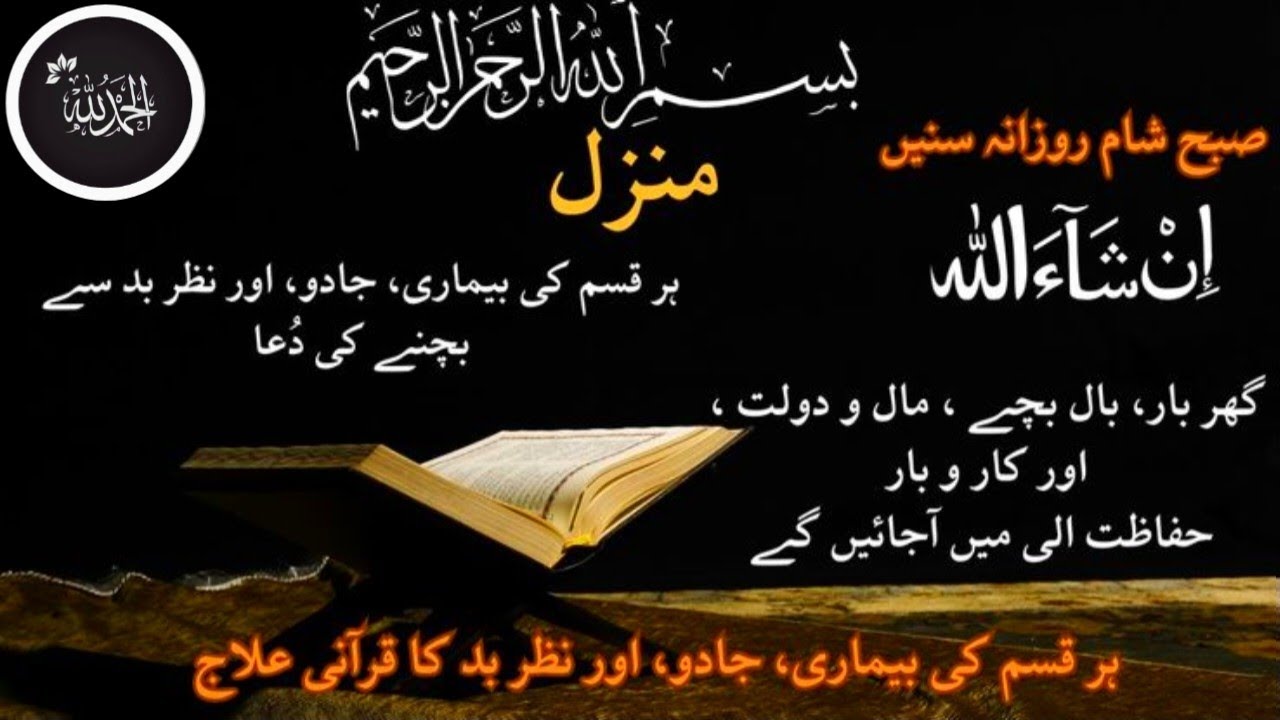 الحمد لله
بسم الله الرحمن الرحيم
منزل
صبح شام روزانہ سنیں
إِنْ شَآءَ اللہ
ہر قسم کی بیماری، جادو، اور نظر بد سے
بچنے کی دُعا
گھر بار، بال بچے ، مال و دولت ،
اور کار و بار
حفاظت الی میں آجائیں گے
ہر قسم کی بیماری، جادو، اور نظر بد کا قرآنی علاج